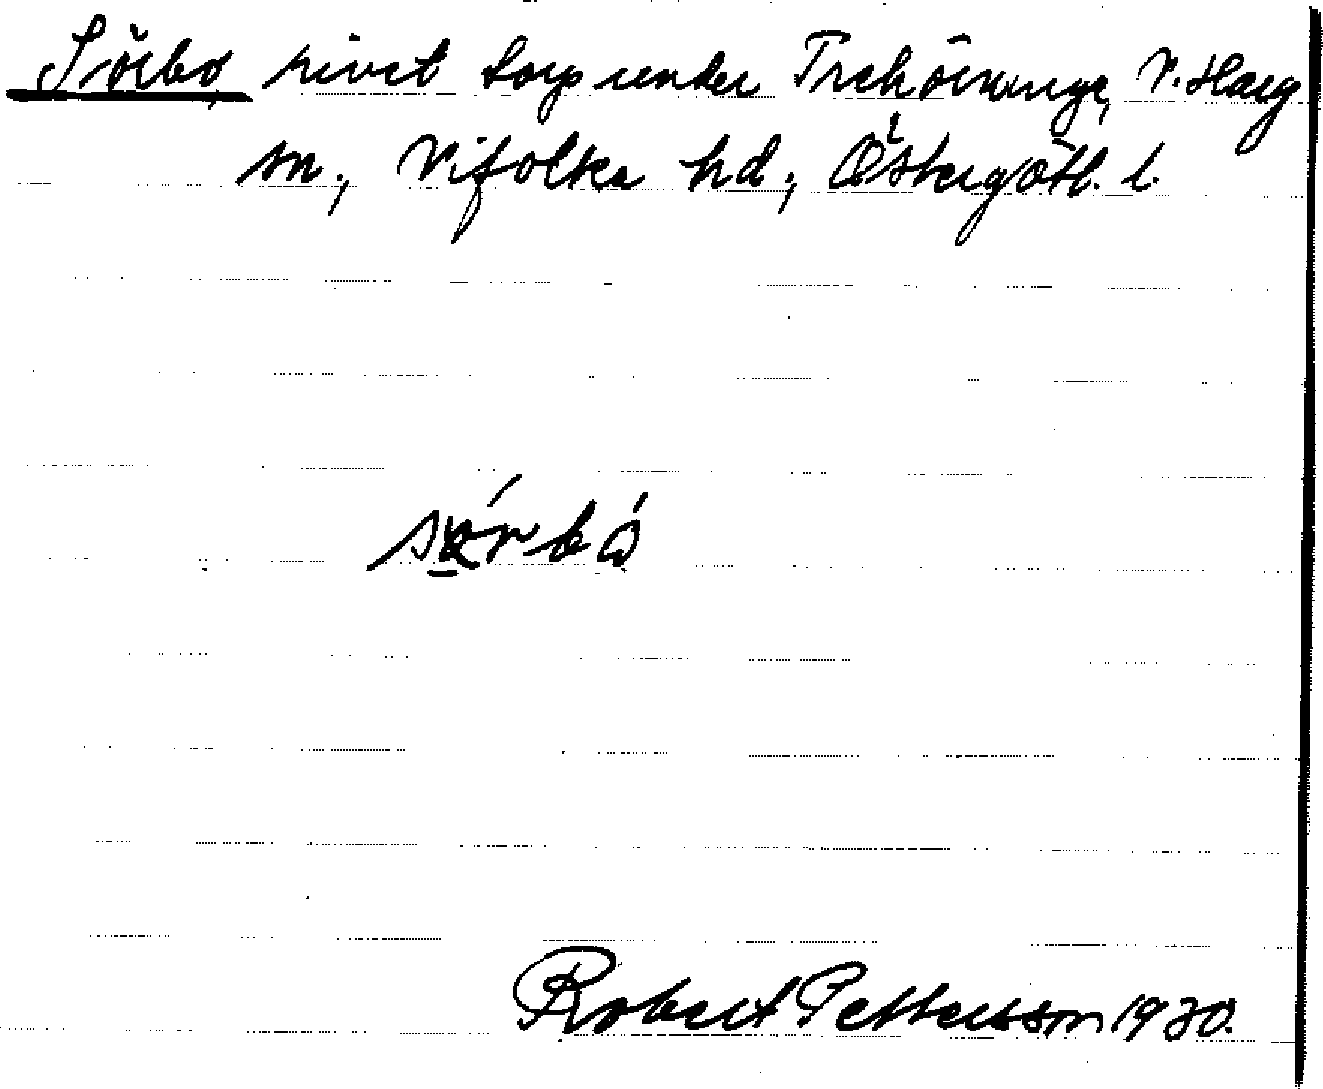 Sörbo, rivet torp under Trehörninge, V. Harg
sn., Vifolka hd., Östergötl. l.
sǿrbó
Robert Pettersson 1930.